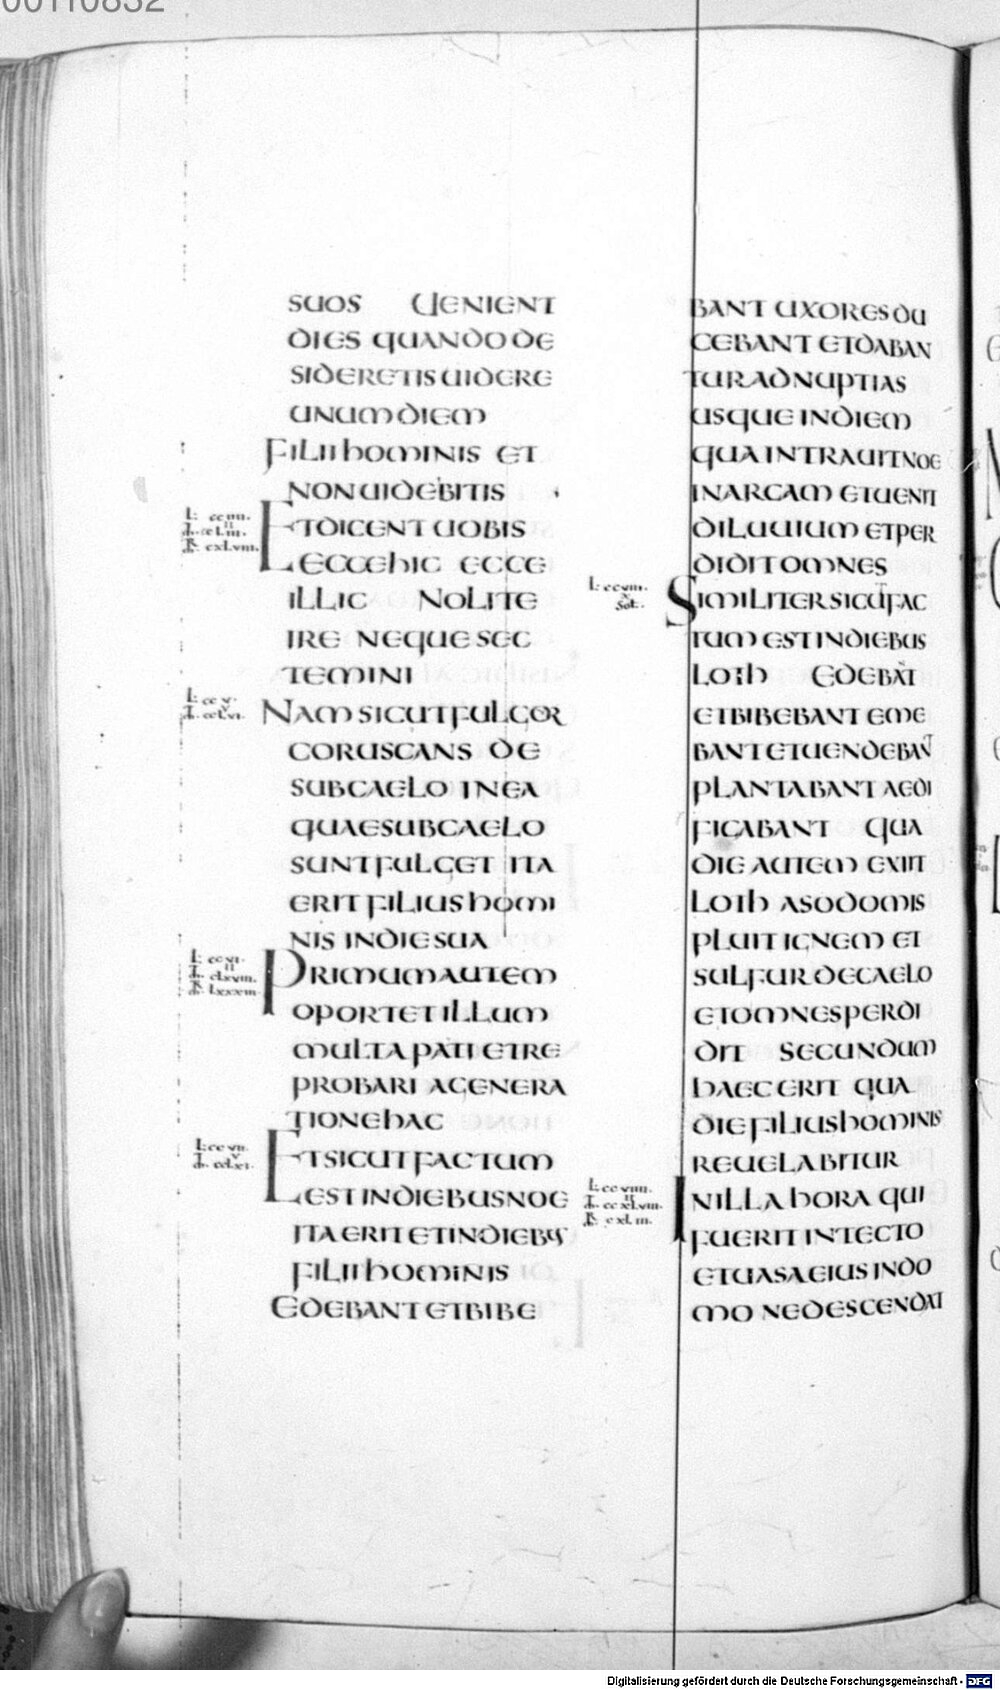 00110832
SUOS UENIENT
DIES QUANDO DE
SIDERETIS UIDERE
UNUM DIEM
FILII HOMINIS ET
NON UIDEBITIS
ET DICENT UOBIS
ECCE HIC ECCE
ILLIC NOLITE
IRE NEQUE SEC
TEMINI
NAM SICUT FULGOR
CORUSCANS DE
SUB CAELO IN EA
QUAE SUB CAELO
SUNT FULGET ITA
ERIT FILIUS HOMI
NIS IN DIE SUA
PRIMUM AUTEM
OPORTET ILLUM
MULTA PATI ET RE
PROBARI A GENERA
TIONE HAC
ET SICUT FACTUM
EST IN DIEBUS NOE
ITA ERIT ET IN DIEBUS
FILII HOMINIS
EDEBANT ET BIBE
BANT UXORES DU
CEBANT ET DABAN
TUR AD NUPTIAS
USQUE IN DIEM
QUA INTRAUIT NOE
IN ARCAM ET UENIT
DILUUIUM ET PER
DIDIT OMNES
L. ccviii.
SIMILITER SICUT FAC
TUM EST IN DIEBUS
LOTH EDEBANT
ET BIBEBANT EME
BANT ET UENDEBANT
PLANTABANT AEDI
FICABANT QUA
DIE AUTEM EXIIT
LOTH A SODOMIS
PLUIT IGNEM ET
SULFUR DE CAELO
ET OMNES PERDI
DIT SECUNDUM
HAEC ERIT QUA
DIE FILIUS HOMINIS
REUELABITUR
IN ILLA HORA QUI
FUERIT IN TECTO
ET UASA EIUS IN DO
MO NE DESCENDAT
Digitalisierung gefördert durch die Deutsche Forschungsgemeinschaft - DFG